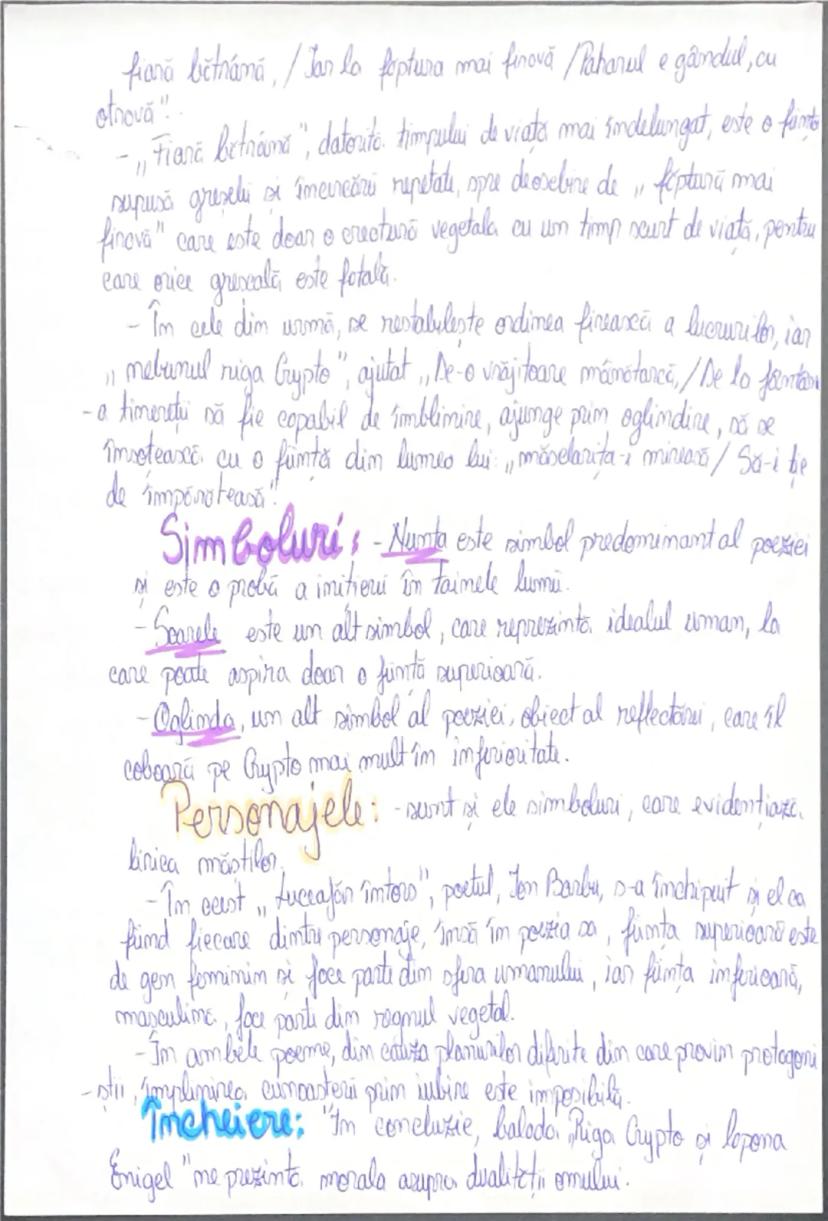 fiară bătrână, / Iar la făptura mai firavă / Pahar e gândul, cu
otravă".
- „Fiară bătrână", datorită timpului de viață mai îndelungat, este o ființă
supusă greșelii și încercării repetate, spre deosebire de „făptură mai
firavă" care este doar o creatură vegetală cu un timp scurt de viață, pentru
care orice greșeală este fatală.
- În cele din urmă, se restabilește ordinea firească a lucrurilor, iar
„nebunul riga Crypto", ajutat „De-o vrăjitoare mânătarcă, / De la fântân
-a tinereții să fie capabil de împlinire, ajunge prin oglindire, să se
însoțească cu o ființă din lumea lui: „măsălarița-i mireasă / Să-i ție
de împărăteasă".
Simboluri: - Nunta este simbol predominant al poeziei
și este o probă a inițierii în tainele lumii.
- Soarele este un alt simbol, care reprezintă idealul uman, la
care poate aspira doar o ființă superioară.
- Oglinda, un alt simbol al poeziei, obiect al reflectării, care îl
coboară pe Crypto mai mult în inferioritate.
Personajele: - sunt și ele simboluri, care evidențiază
lirica măștilor.
- În acest „Luceafăr întors", poetul, Ion Barbu, s-a închipuit și el ca
fiind fiecare dintre personaje, însă în poezia sa, ființa superioară este
de gen feminin și face parte din sfera umanului, iar ființa inferioară,
masculină, face parte din regnul vegetal.
- În ambele poeme, din cauza planurilor diferite din care provin protagoni
-știi, împlinirea cunoașterii prin iubire este imposibilă.
Încheiere: "În concluzie, balada „Riga Crypto și lapona
Enigel" ne prezintă morala asupra dualității omului.